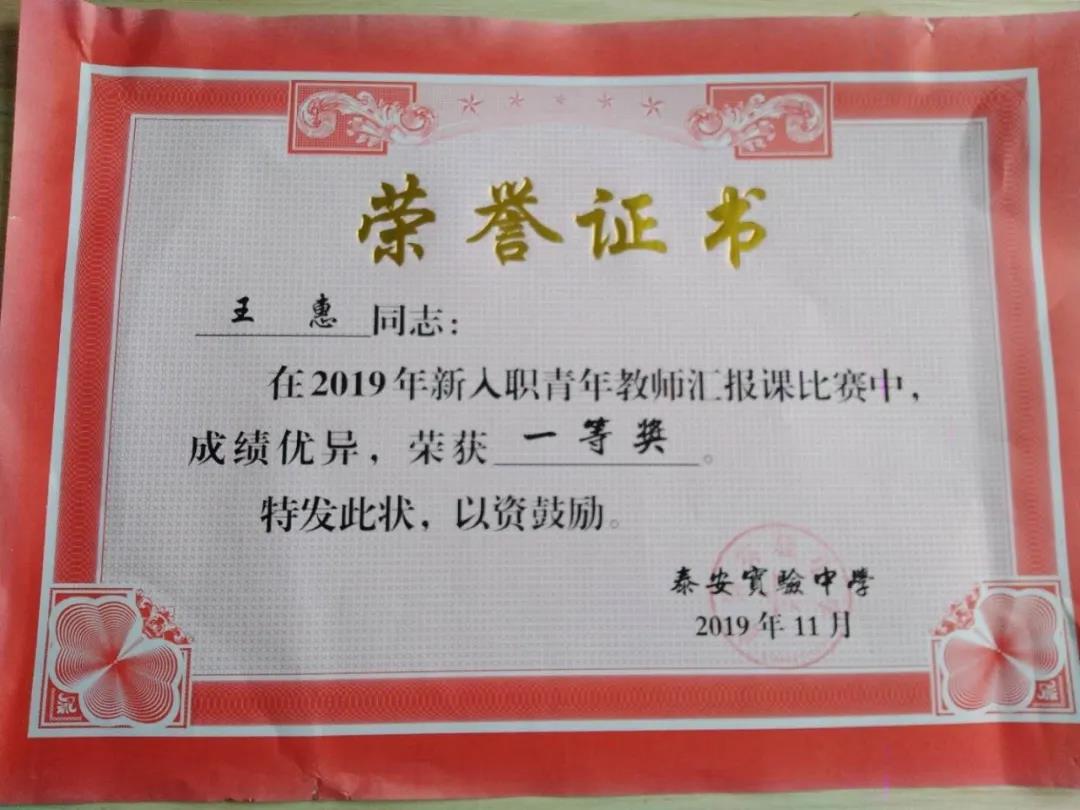 荣誉证书
王 惠 同志：
在2019年新入职青年教师汇报课比赛中，
成绩优异，荣获 一等奖 。
特发此状，以资鼓励。
泰安實驗中學
2019年11月